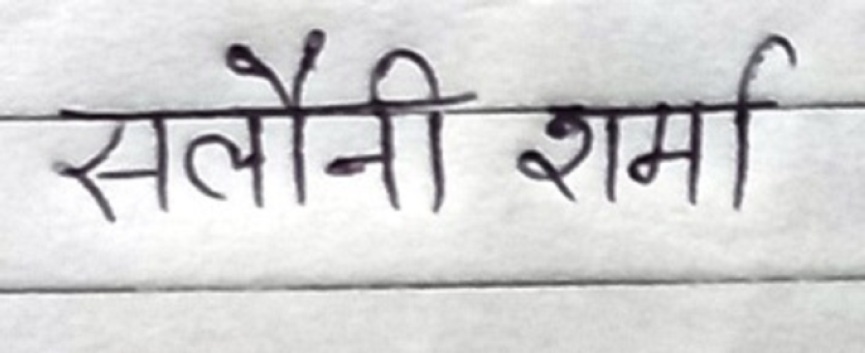 सलौनी शर्मा